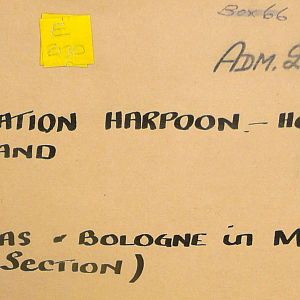 Box 66
E
ADM. 2
ATION HARPOON - HO
AND
AS & BOLOGNE in M
SECTION)